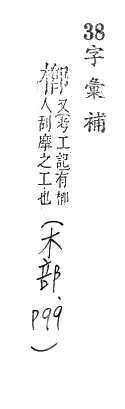 38字彙補
又考工記有
人刮摩之工也
(木部、p99)